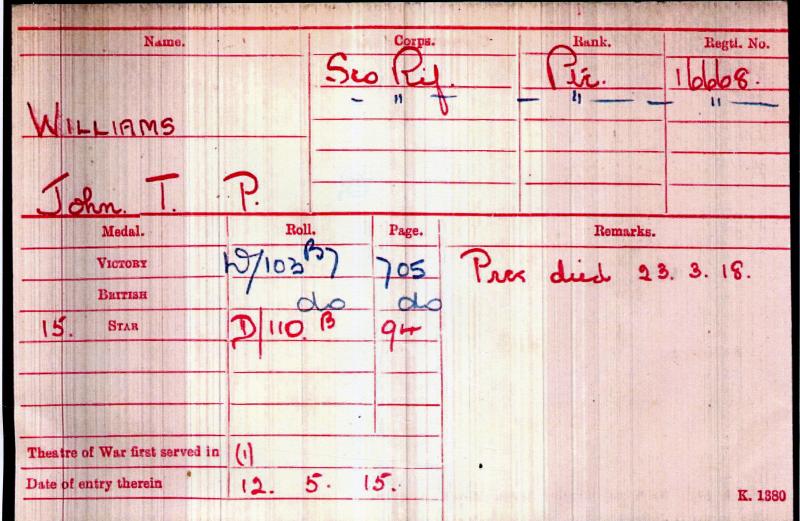 Name. Corps. Rank. Regtl. No.
Sco Rif. Pte. 16668.
– " – – " – – " –
WILLIAMS
John. T. P.
Medal. Roll. Page. Remarks.
VICTORY W/103 B7 705 Pres died 23. 3. 18.
BRITISH do do
15. STAR D/110 B 94
Theatre of War first served in (1)
Date of entry therein 12. 5. 15.
K. 1380